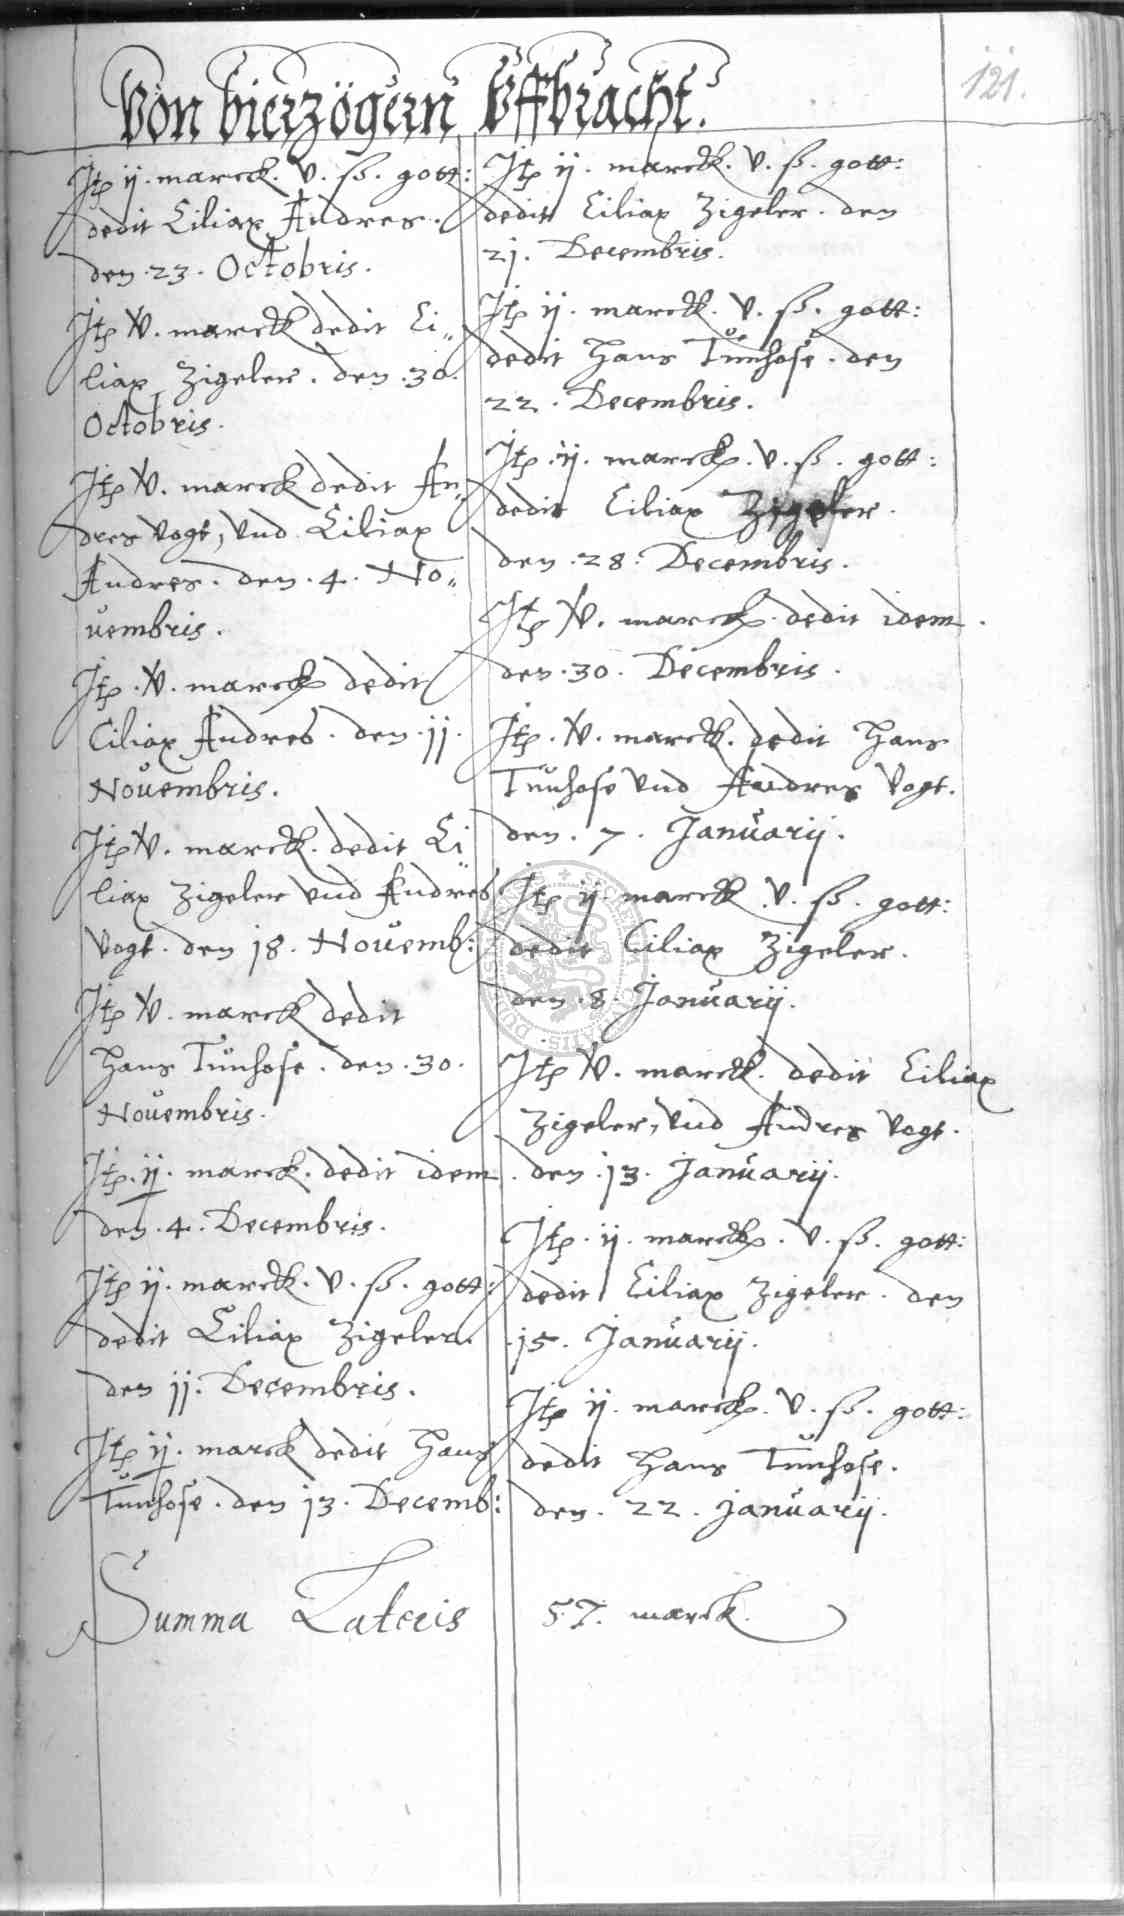 121.
Von bierzögern Vffbracht.
Itp ij. marck. v. ß. gott:
dedit Ciliax Andres.
den .23. Octobris.
Itp v. marck dedit Ci„
liax Zigeler. den .30.
Octobris.
Itp v. marck dedit An„
dres Vogt, vnd Ciliax
Andres. den .4. No„
uembris.
Itp .v. marck dedit
Ciliax Andres. den .jj.
Nouembris.
Itp v. marck. dedit Ci„
liax Zigeler vnd Andres
Vogt. den j8. Nouemb:
Itp v. marck dedit
Hans Tünhose. den .30.
Nouembris.
Itp. ij. marck. dedit idem
den .4. Decembris.
Itp ij. marck. v. ß. gott:
dedit Ciliax Zigeler.
den jj. Decembris.
Itp ij. marck dedit Hans
Tünhose. den j3. Decemb:
Itp ij. marck. v. ß. gott:
dedit Ciliax Zigeler. den
2j. Decembris.
Itp ij. marck. v. ß. gott:
dedit Hans Tünhose. den
22. Decembris.
Itp .ij. marck. v. ß. gott:
dedit Ciliax Zigeler.
den .28. Decembris.
Itp v. marck. dedit idem.
den .30. Decembris.
Itp. v. marck. dedit Hans
Tünhose vnd Andres Vogt.
den. 7. Januarij.
Itp ij. marck. v. ß. gott:
dedit Ciliax Zigeler.
den .8. Januarij.
Itp v. marck. dedit Ciliax
Zigeler, vnd Andres Vogt.
. den .j3. Januarij.
Itp .ij. marck. v. ß. gott:
dedit Ciliax Zigeler. den
.j5. Januarij.
Itp ij. marck. v. ß. gott:
dedit Hans Tünhose.
den. 22. Januarij.
Summa Lateris 57. marck.